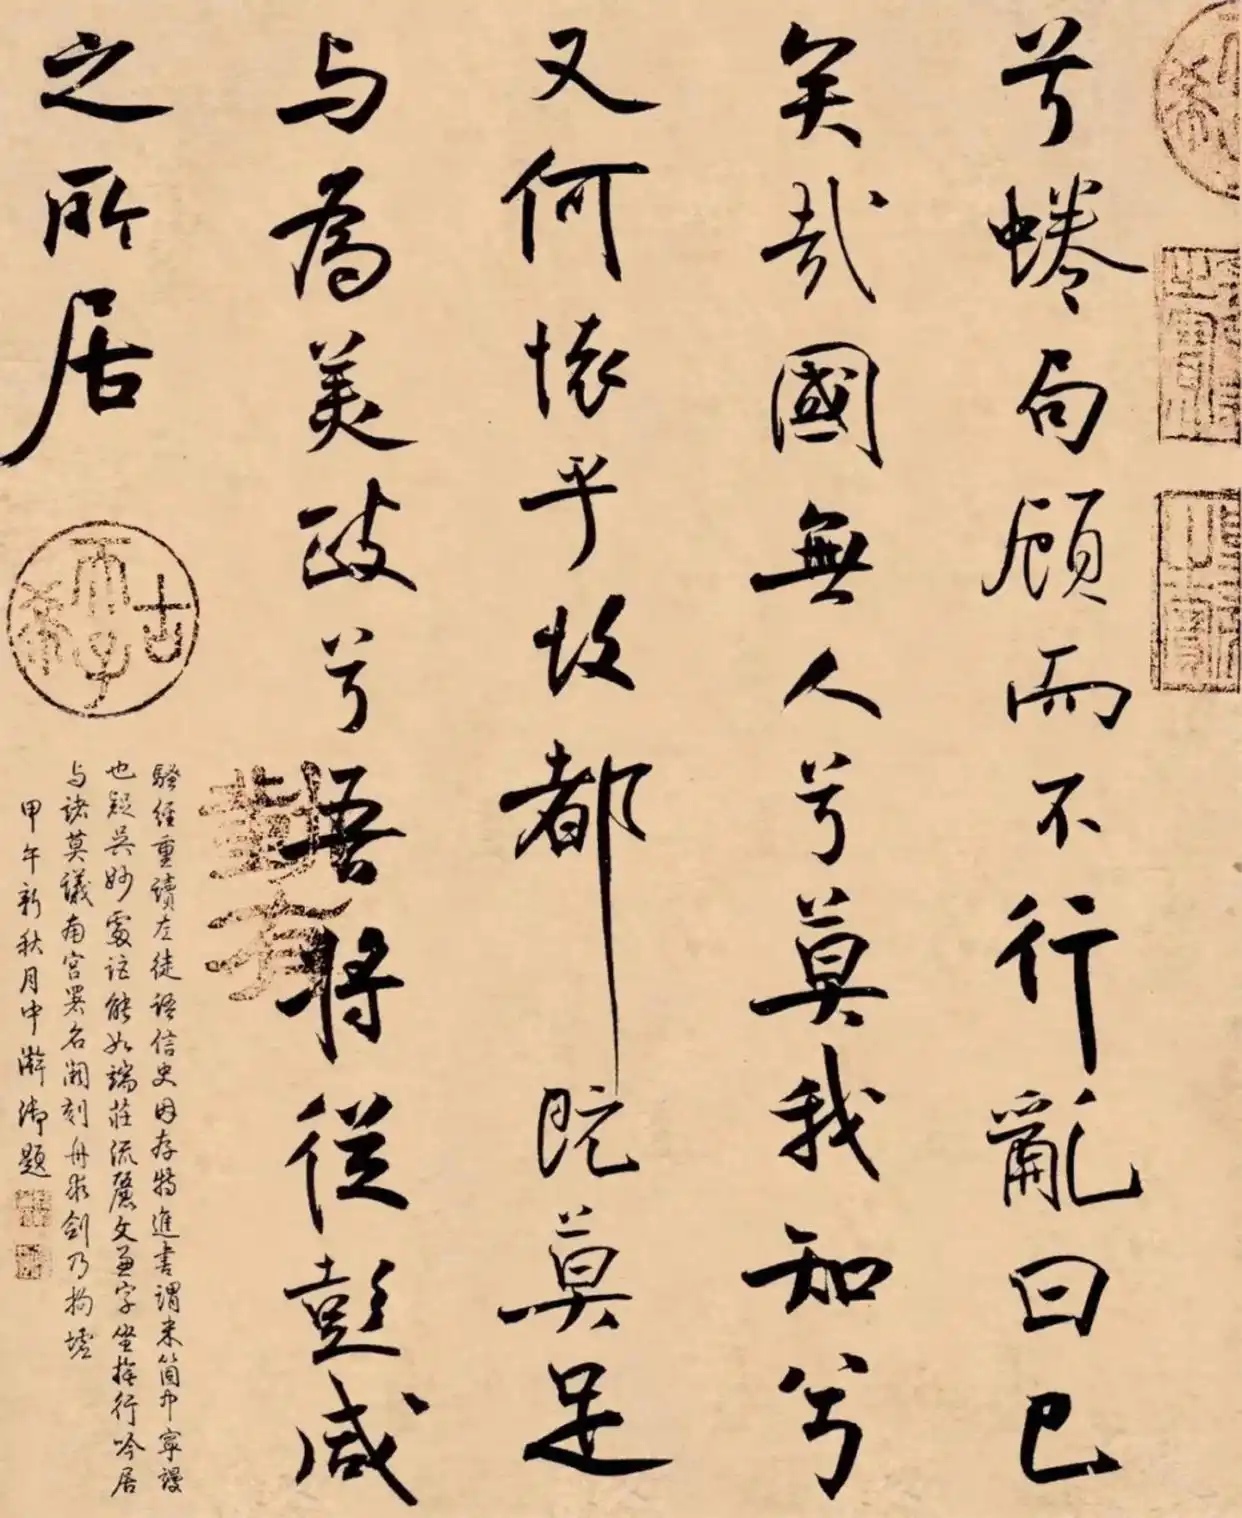 兮蜷句顧而不行亂曰已
矣哉國無人兮莫我知兮
又何懷乎故都既莫足
与為美政兮吾將從彭咸
之所居
古希天子
騷經重讀左徒語信史因存特進書謂米箇中寧謾
也疑吳妙處詎能如端莊流麗文兼字坐行吟居
与諸莫議南宮署名闕刻舟求劍乃拘墟
甲午新秋月中澣御題